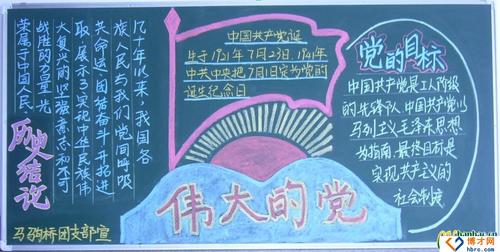 几十年以来，我国各
族人民与我们党同呼吸
共命运、团结奋斗、开拓进
取，展示了实现中华民族伟
大复兴的坚强意志和不可
战胜的力量。光
荣属于中国人民
历史结论
马驹桥团支部宣
中国共产党诞
生于1921年7月23日，1941年
中共中央把7月1日定为党的
诞生纪念日
伟大的党
党的目标
中国共产党是工人阶级
的先锋队，中国共产党以
马列主义毛泽东思想
为指南，最终目标是
实现共产主义的
社会制度
博才网
hbrc.com